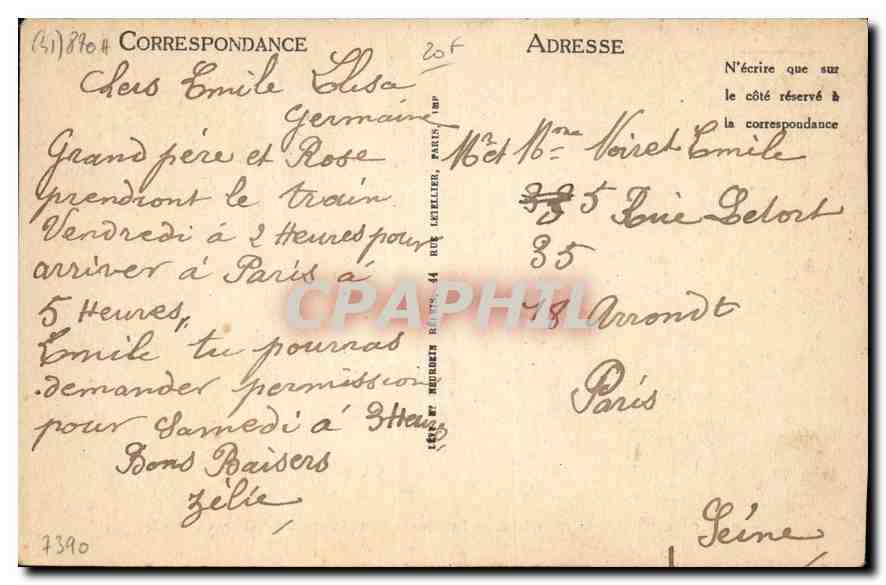 (31) 890A
CORRESPONDANCE
20f
Chers Emile Elisa
Germaine
Grand père et Rose
prendront le train
Vendredi à 2 Heures pour
arriver à Paris à
5 Heures,,
Emile tu pourras
demander permission
pour Samedi à 3 Heures
Bons Baisers
Zélie
7390
LÉVY ET NEURDEIN RÉUNIS, 44 RUE LETELLIER, PARIS, IMP
ADRESSE
N'écrire que sur
le côté réservé à
la correspondance
Mr et Mme Voiret Emile
5 Rue Letort
35
18 Arrondt
Paris
Seine
CPAPHIL